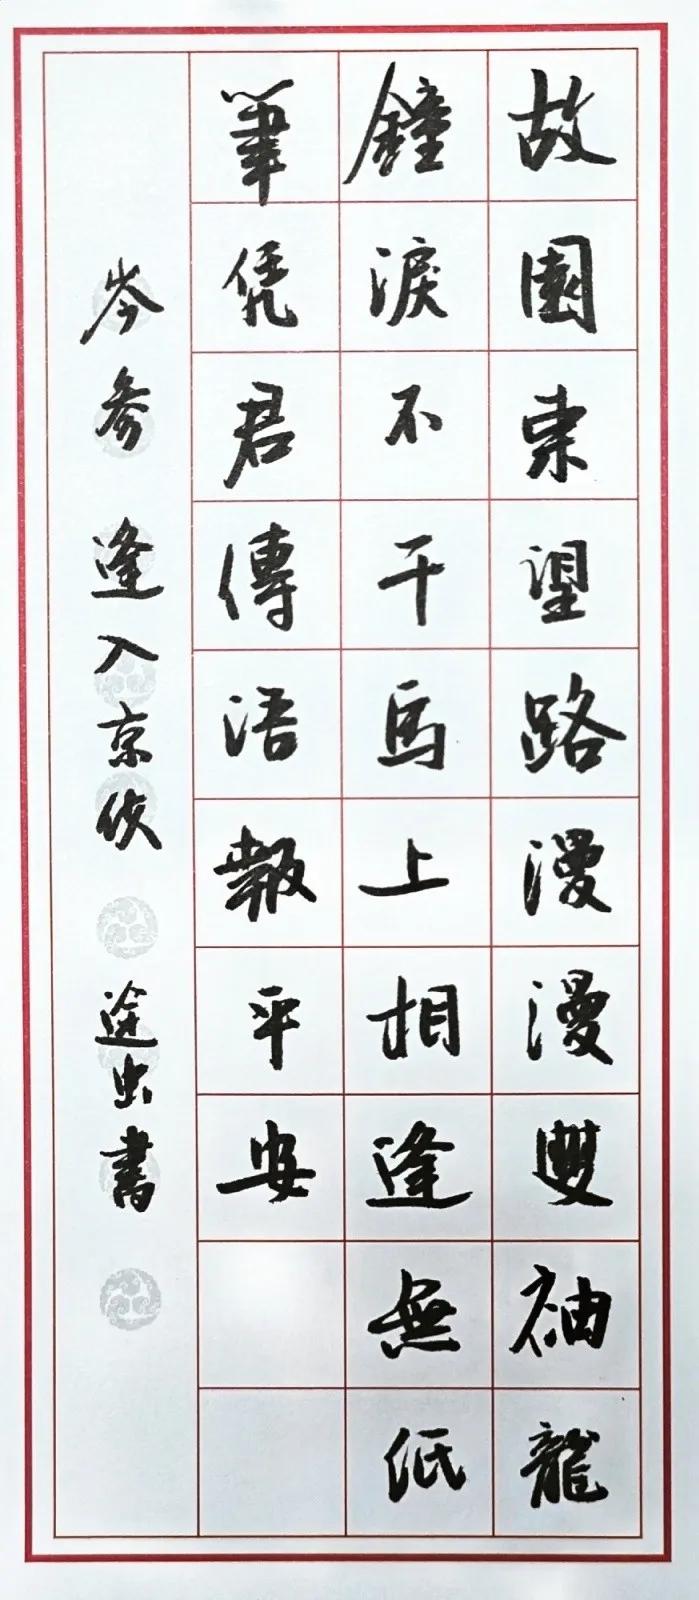 故園東望路漫漫雙袖龍
鐘淚不干馬上相逢無紙
筆凭君傳語報平安
岑參 逢入京使 途出書